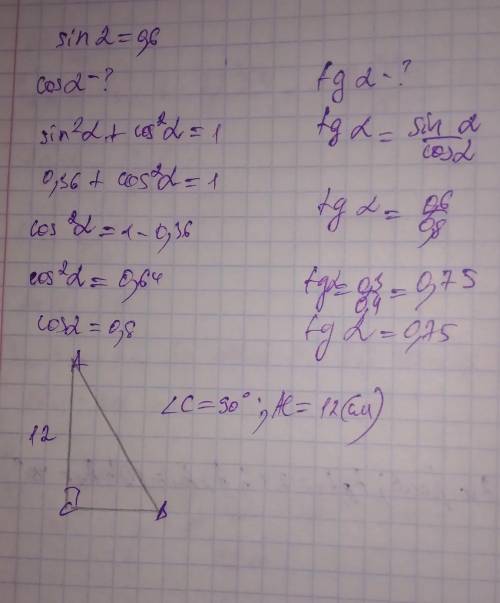 sin α = 0,6
cos α - ?
sin²α + cos²α = 1
0,36 + cos²α = 1
cos²α = 1 - 0,36
cos²α = 0,64
cos α = 0,8
tg α - ?
tg α = sin α / cos α
tg α = 0,6 / 0,8
tg α = 0,3 / 0,4 = 0,75
tg α = 0,75
A
12
C
B
∠C = 90°; AC = 12 (см)